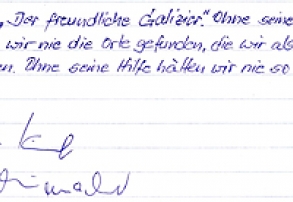 „Der freundliche Galizier“. Ohne seine
wir nie die Orte gefunden, die wir als
en. Ohne seine Hilfe hätten wir nie so